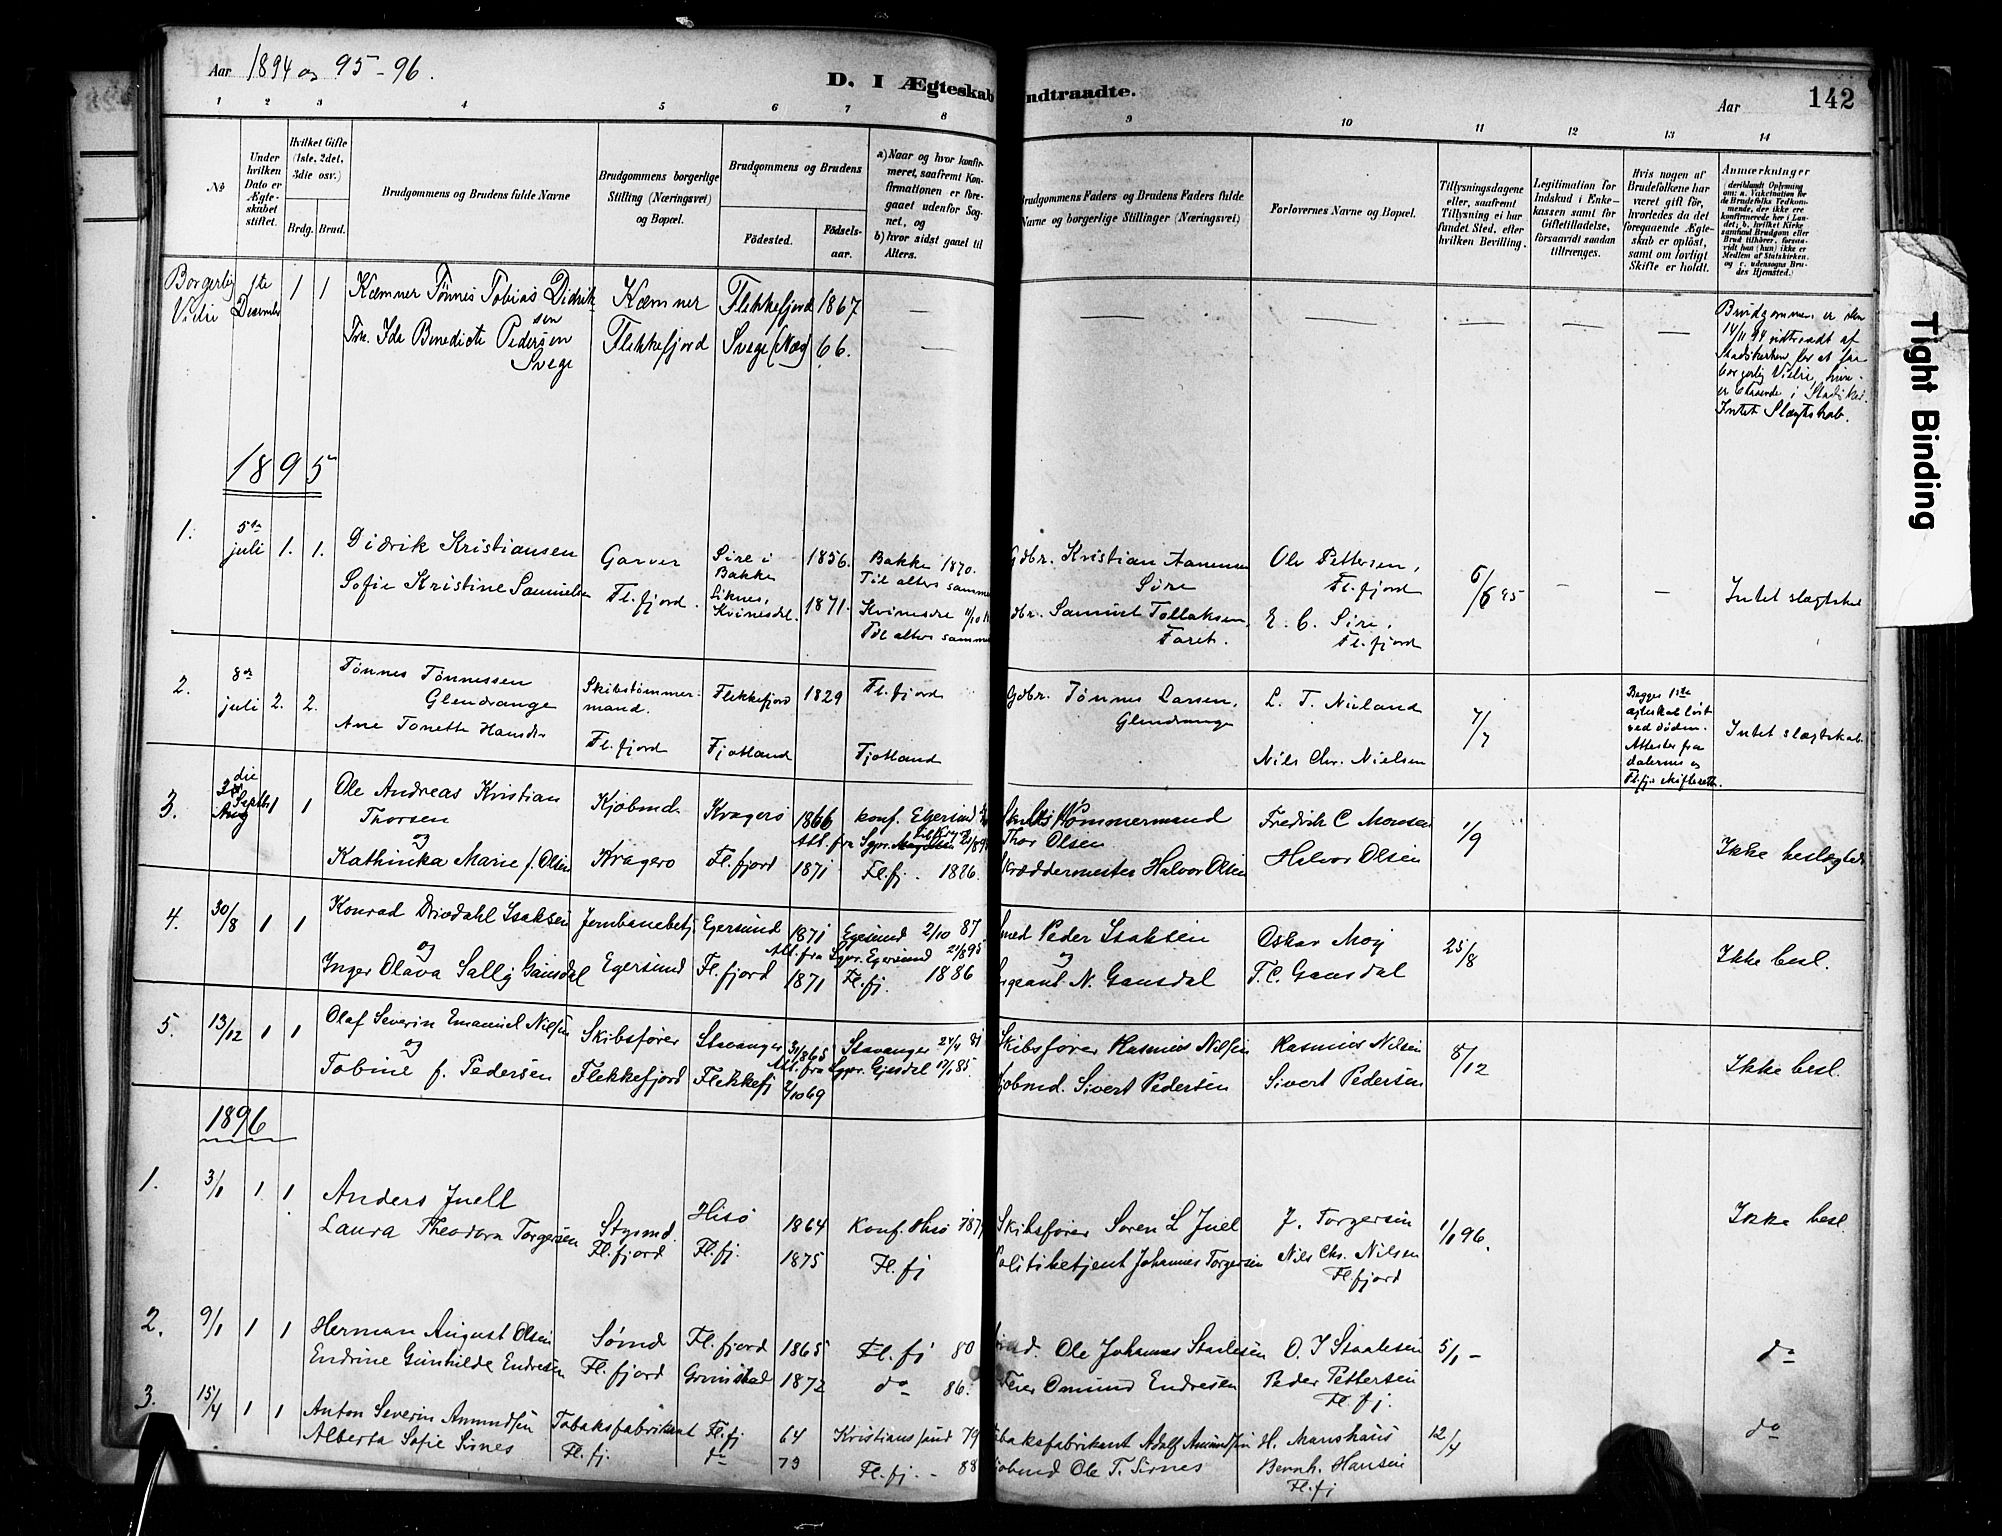 Aar 1894 og 95-96.
D. I Ægteskab
ndtraadte.
Aar
142
1 2 3 4 5 6 7 8 9 10 11 12 13 14
No
Under hvilken Dato er Ægteskabet stiftet.
Hvilket Gifte (1ste, 2det, 3die osv.)
Brdg. Brud.
Brudgommens og Brudens fulde Navne
Brudgommens borgerlige Stilling (Næringsvei) og Bopæl.
Brudgommens og Brudens
Födested.
Födselsaar.
a) Naar og hvor konfirmeret, saafremt Konfirmationen er foregaaet udenfor Sognet, og
b) hvor sidst gaaet til Alters.
Brudgommens Faders og Brudens Faders fulde Navne og borgerlige Stillinger (Næringsvei)
Forlovernes Navne og Bopæl.
Tillysningsdagene eller, saafremt Tillysning ei har fundet Sted, efter hvilken Bevilling.
Legitimation for Indskud i Enkekassen samt for Giftetilladelse, forsaavidt saadan tiltrænges.
Hvis nogen af Brudefolkene har været gift för, hvorledes da det foregaaende Ægteskab er oplöst, samt om lovligt Skifte er holdt.
Anmerkninger
(deriblandt Oplysning om: a. Vakcination for de Brudefolks Vedkommende, der ikke ere konfirmerede her i Landet; b. hvilket Kirkesamfund Brudgom eller Brud tilhörer, forsaavidt han (hun) ikke er Medlem af Statskirken, og c. udensogns Brudes Hjemsted.
Borgerlig Vielse
1te December
1 1
Kæmner Tønnes Tobias Didriksen
Frk. Ida Benedicte Pedersen Svege
Kæmner
Flekkefjord
Flekkefjord 1867
Svege (Næs) 66.
Brudgommen er den
14/11 94 udtraadt af
Statskirken for at faa
borgerlig Vielse,
Intet Slægtskab.
1895
1. 5te juli 1. 1.
Didrik Kristiansen
Sofie Kristine Samuelsen
Garver
Fl.fjord.
Sire i Bakke 1856.
Liknes, Kvinesdal. 1871.
Bakke 1870.
Til alters samme
Kvinesdal
Til alters samme
Gdbr. Kristian Aanensen Sire
Gdbr. Samuel Tollaksen, Faret.
Ole Pettersen, Fl.fjord
E. C. Sire, Fl.fjord
6/6 95
Intet slægtskab
2. 8de juli 2. 2.
Tønnes Tønnessen Glendrange
Ane Tonette Hansdr
Skibstømmermand.
Fl.fjord
Flekkefjord 1829
Fjotland
Fl.fjord
Fjotland
Gdbr. Tønnes Larsen, Glendrange
L. T. Nuland
Nils Chr. Nielsen
7/7
Begges 1ste
egteskab løst
ved døden.
Attester fra
dalernes og
Fl.fjo skifteret.
Intet slægtskab.
3. 2die Septbr 1 1
Ole Andreas Kristian Thorsen
og
Kathinka Marie f. Olsen
Kjøbmd.
Kragerø
Kragerø 1866
Fl.fjord 1871
Konf. Egersund
Att. fra Sgpr.
Fl.fj. 1886.
Skibstømmermand
Thor Olsen
Skræddermester Halvor Olsen
Fredrik C Monsen
Halvor Olsen
1/9
Ikke beslægtede
4. 30/8 1 1
Konrad Drivdahl Isaksen
og
Inger Olava Sally Gausdal
Jernbanebetj.
Egersund
Egersund 1871
Fl.fjord 1871
Egersund 2/10 87
Att. fra Sgpr. Egersund 21/8 95
Fl.fj. 1886
Smed Peder Isaksen
og
Sergeant N. Gausdal
Oskar Moy
T. C. Gausdal
25/8
Ikke besl.
5. 13/12 1 1
Olaf Severin Emanuel Nilsen
og
Tobine f. Pedersen
Skibsfører
Flekkefjord
Stavanger 31/8 65
Flekkefj 2/10 69
Stavanger 24/4 81
Att. fra Sgpr. Gjesdal 17/1 85.
Skibsfører Rasmus Nilsen
Kjøbmd. Sivert Pedersen
Rasmus Nilsen
Sivert Pedersen
8/12
Ikke besl.
1896
1. 3/1 1 1
Anders Juell
Laura Theodora Torgersen
Styrmd.
Fl.fjord
Hisø 1864
Fl.fj. 1875
Konf. Hisø
Fl.fj
Skibsfører Søren L Juel
Politibetjent Johannes Torgersen
J. Torgersen
Nils Chr. Nilsen
Fl.fjord
1/1 96.
Ikke besl.
2. 9/1 1 1
Herman August Olsen
Endrine Gunhilde Endresen
Sømd
Fl.fjord
Fl.fjord 1865
Grimstad 1872
Fl.fj 80
do 86.
Ole Johannes Staalesen
Omund Endresen
O. J Staalesen
Peder Pettersen
Fl.fj.
5/1 -
do
3. 15/4 1 1
Anton Severin Amundsen
Alberta Sofie Sirnes
Tobaksfabrikant
Fl.fj.
Fl.fj 64
do 73
Kristianssund 79
Fl.fj. - 88
Tobaksfabrikant Adolf Amundsen
Kjøbmd Ole T. Sirnes
H. Manshaus
Bernh. Hansen
Fl.fj
12/4
do
Tight Binding